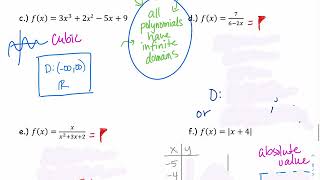 c.) f(x) = 3x³ + 2x² − 5x + 9
cubic
D: (-∞,∞)
ℝ
all
polynomials
have
infinite
domains
d.) f(x) = 7/(6−2x) =
D:
or
e.) f(x) = x/(x²+3x+2) =
f.) f(x) = |x + 4|
x y
-5
-4
absolute
value